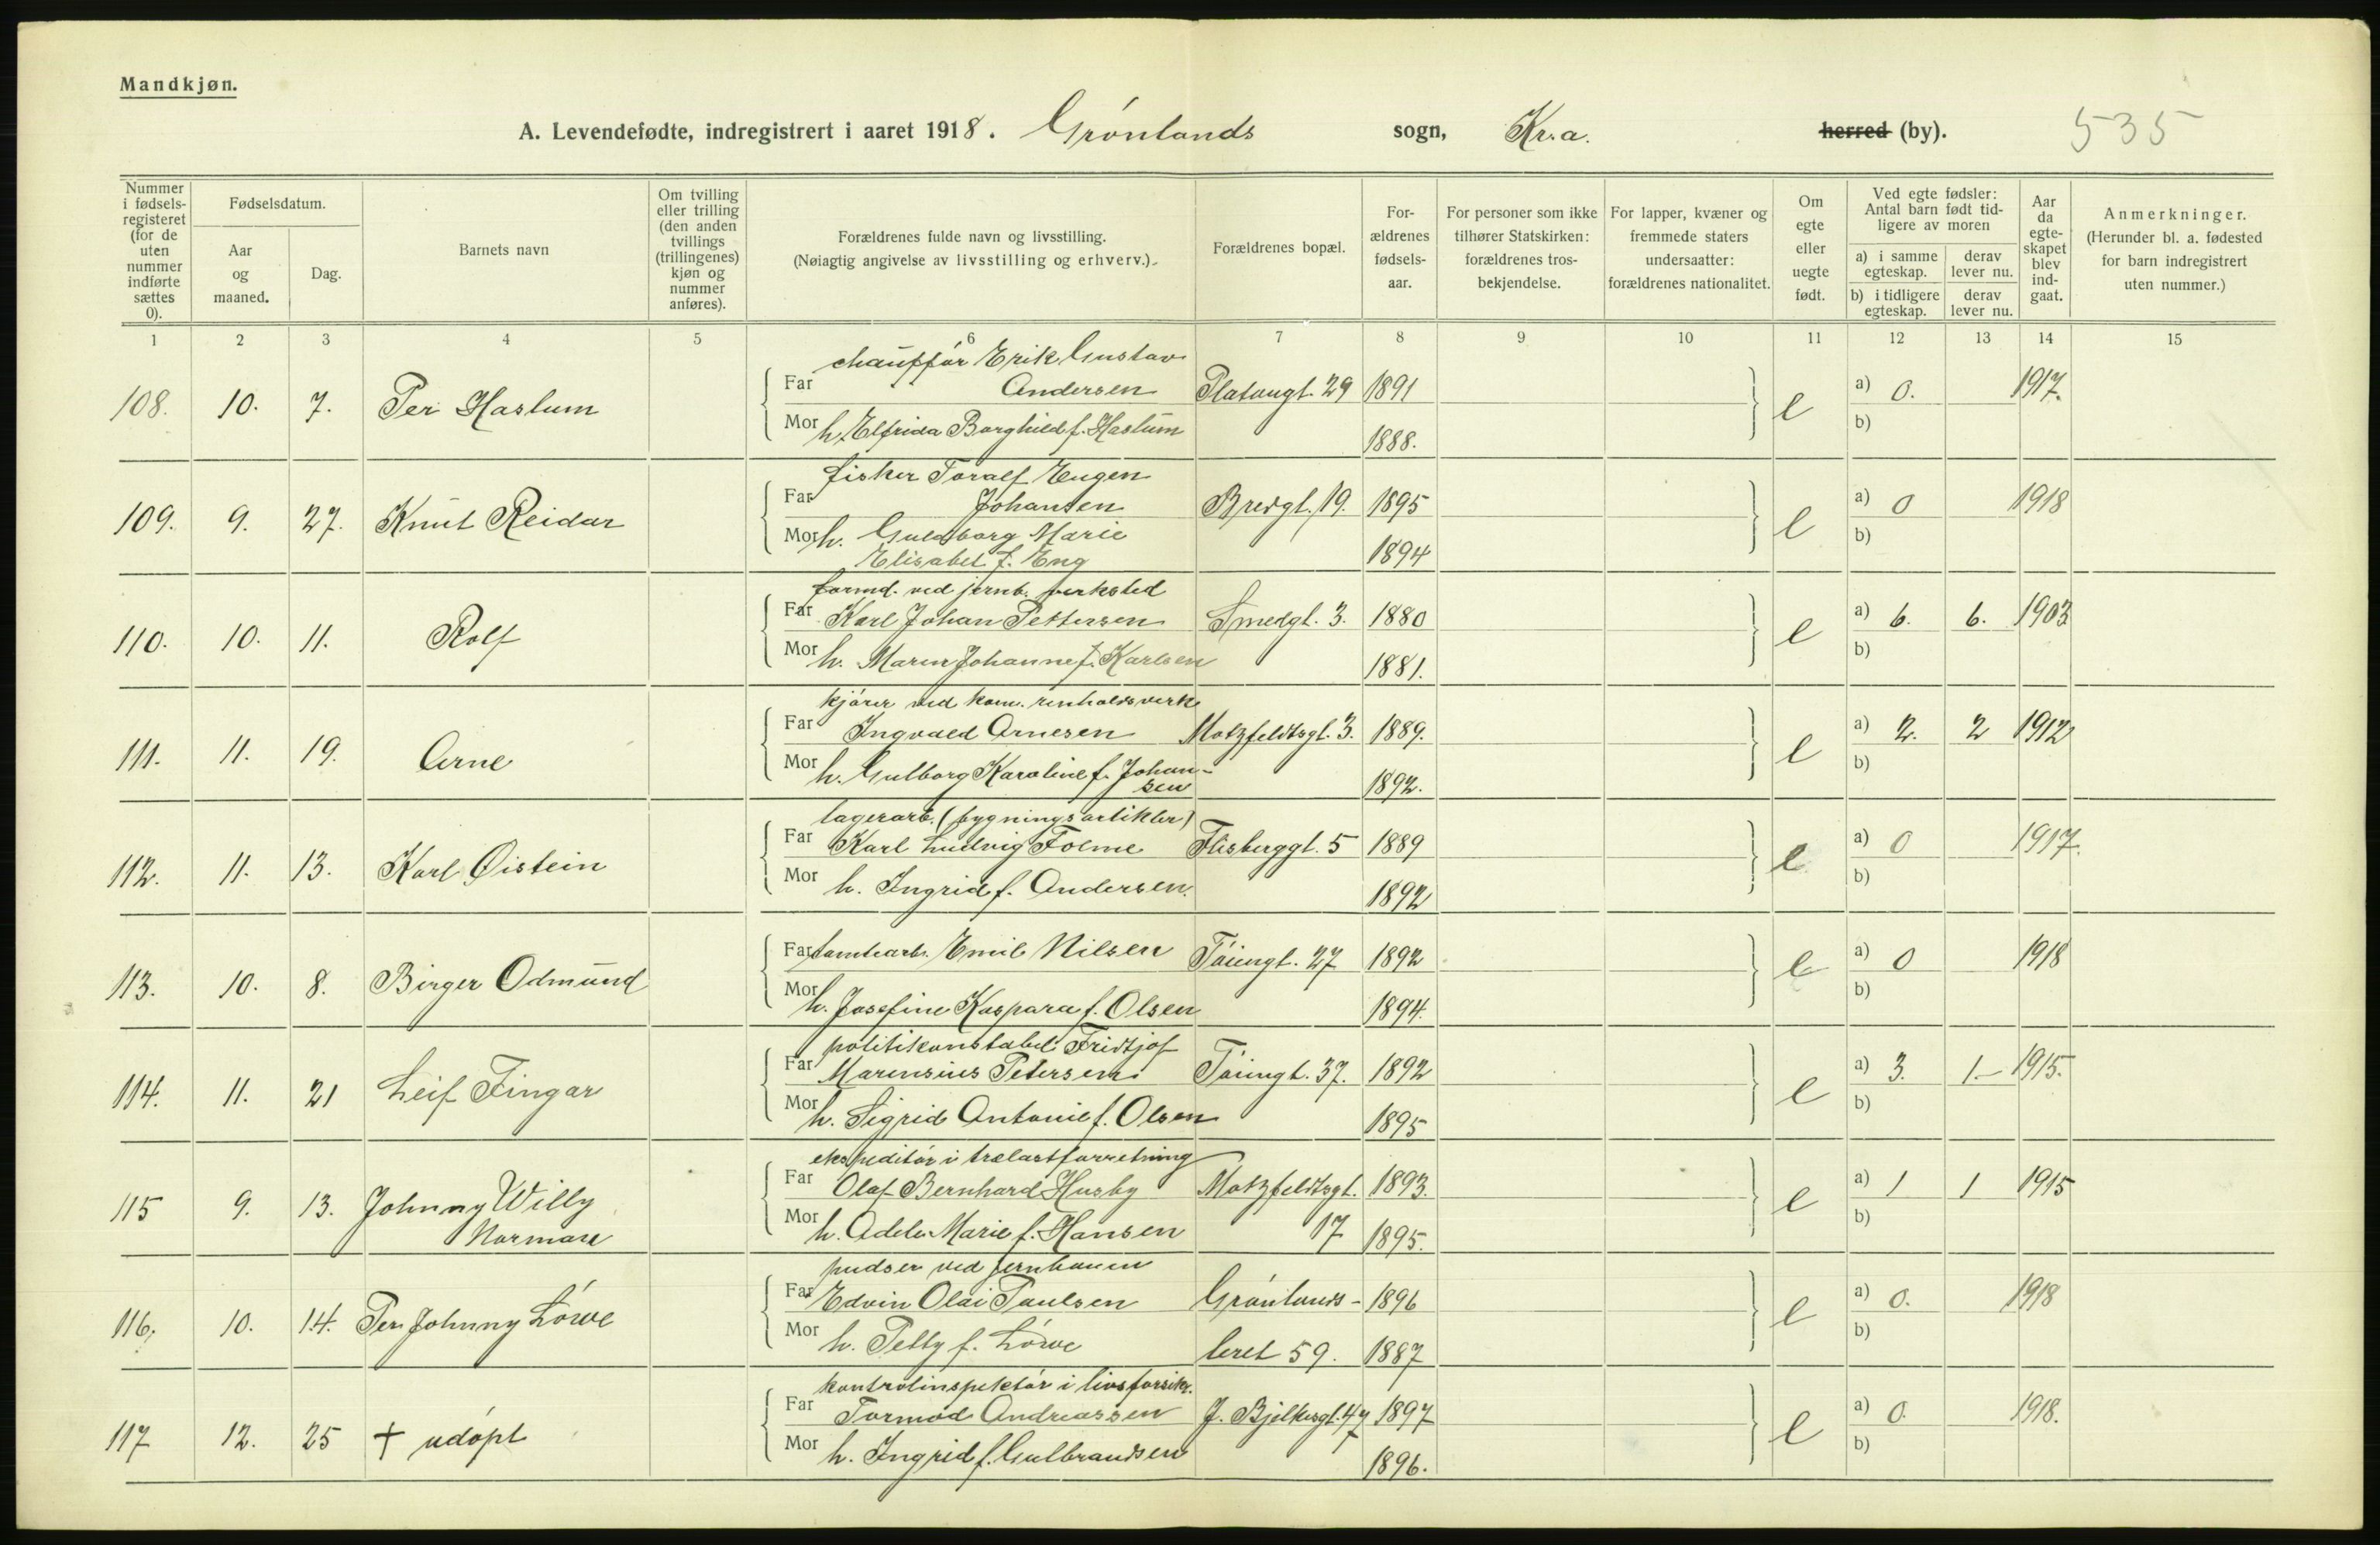 Mandkjøn.
A. Levendefødte, indregistrert i aaret 1918. Grønlands sogn, Kr.a. herred (by). 535
Nummer i fødsels-registeret (for de uten nummer indførte sættes 0).
Fødselsdatum.
Aar og maaned.
Dag.
Barnets navn
Om tvilling eller trilling (den anden tvillings (trillingenes) kjøn og nummer anføres).
Forældrenes fulde navn og livsstilling.
(Nøiagtig angivelse av livsstilling og erhverv.)
Forældrenes bopæl.
For-ældrenes fødsels-aar.
For personer som ikke tilhører Statskirken: forældrenes tros-bekjendelse.
For lapper, kvæner og fremmede staters undersaatter: forældrenes nationalitet.
Om egte eller uegte født.
Ved egte fødsler: Antal barn født tid-ligere av moren
a) i samme egteskap.
derav lever nu.
b) i tidligere egteskap.
derav lever nu.
Aar da egte-skapet blev ind-gaat.
Anmerkninger.
(Herunder bl. a. fødested for barn indregistrert uten nummer.)
1 2 3 4 5 6 7 8 9 10 11 12 13 14 15
chauffør Erik Gustav
108. 10. 7. Per Haslum Far Andersen Platougt. 29 1891 e a) 0. 1917.
Mor h. Elfrida Borghild f. Haslum 1888. b)
fisker Toralf Eugen
109. 9. 27. Knut Reidar Far Johansen Bredgt. 19. 1895 e a) 0 1918
Mor h. Guldborg Marie b)
Elisabet f. Eng 1894
formd. ved jernb. verksted
110. 10. 11. Rolf Far Karl Johan Pettersen Smedgt. 3. 1880 e a) 6. 6. 1903
Mor h. Maren Johanne f. Karlsen 1881. b)
kjører ved kom. renholdsverk
111. 11. 19. Arne Far Ingvald Arnesen Motzfeldtsgt. 3. 1889. e a) 2. 2 1912
Mor h. Gulborg Karoline f. Johan-
sen 1892. b)
lagerarb. (bygningsartikler)
112. 11. 13. Karl Øistein Far Karl Ludvig Tolme Flisberggt. 5 1889 e a) 0 1917.
Mor h. Ingrid f. Andersen. 1892 b)
113. 10. 8. Birger Odmund Far tomtearb. Emil Nilsen Tøiengt. 27 1892 e a) 0 1918
Mor h. Josefine Kaspara f. Olsen 1894. b)
politikonstabel Fridtjof
114. 11. 21 Leif Fingar Far Marensius Petersen Tøiengt. 37. 1892 e a) 3. 1. 1915.
Mor h. Sigrid Antonie f. Olsen 1895 b)
ekspeditør i trælastforretning
115 9. 13. Johnny Willy Far Olaf Bernhard Husby Motzfeldtsgt. 1893. e a) 1 1 1915
Norman Mor h. Adele Marie f. Hansen 17 1895. b)
pudser ved jernbanen
116. 10. 14. Per Johnny Löwe Far Edvin Olai Paulsen Grønlands- 1896 e a) 0. 1918
Mor h. Petty f. Löwe leret 59. 1887 b)
kontrolinspektør i livsforsikr.
117 12. 25 + udøpt Far Tormod Andreassen J. Bjelkesgt. 47 1897 e a) 0. 1918.
Mor h. Ingrid f. Gulbrandsen 1896. b)